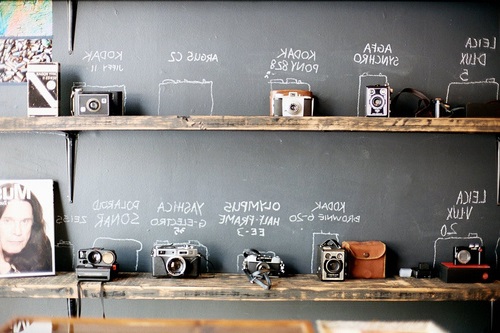 KODAK
JIFFY II
ARGUS C2
KODAK
PONY 828
AGFA
SYNCHRO
LEICA
D LUX
5
ZEISS
POLAROID
SONAR
YASHICA
G-ELECTRO
35
OLYMPUS
HALF-FRAME
EE-3
KODAK
BROWNIE 6-20
LEICA
V LUX
20